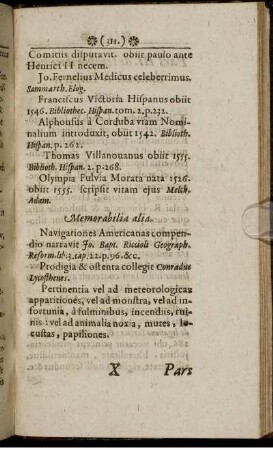 ( 321. )
Comitiis disputavit. obiit paulo ante
Henrici II necem.
Jo. Fernelius Medicus celeberrimus.
Sammarth. Elog.
Franciscus Victoria Hispanus obiit
1546. Bibliothec. Hispan. tom. 2, p. 232.
Alphonsus à Corduba viam Nomi-
nalium introduxit, obiit 1542. Biblioth.
Hispan. p. 262.
Thomas Villanouanus obiit 1555.
Biblioth. Hispan. 2. p. 268.
Olympia Fulvia Morata nata 1526.
obiit 1555. scripsit vitam ejus Melch.
Adam.
Memorabilia alia.
Navigationes Americanas compen-
dio narravit Jo. Bapt. Riccioli Geograph.
Reform. lib. 3. cap. 22. p. 96. &c.
Prodigia & ostenta collegit Conradus
Lycosthenes.
Pertinentia vel ad meteorologicas
apparitiones, vel ad monstra, vel ad in-
fortunia, à fulminibus, incendiis, rui-
nis: vel ad animalia noxia, mures, lo-
custas, papiliones.
X Pars